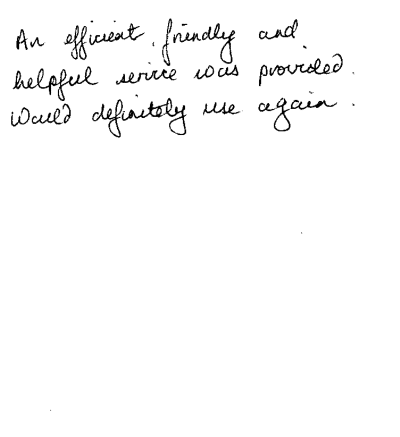 An efficient, friendly and
helpful service was provided.
Would definitely use again.